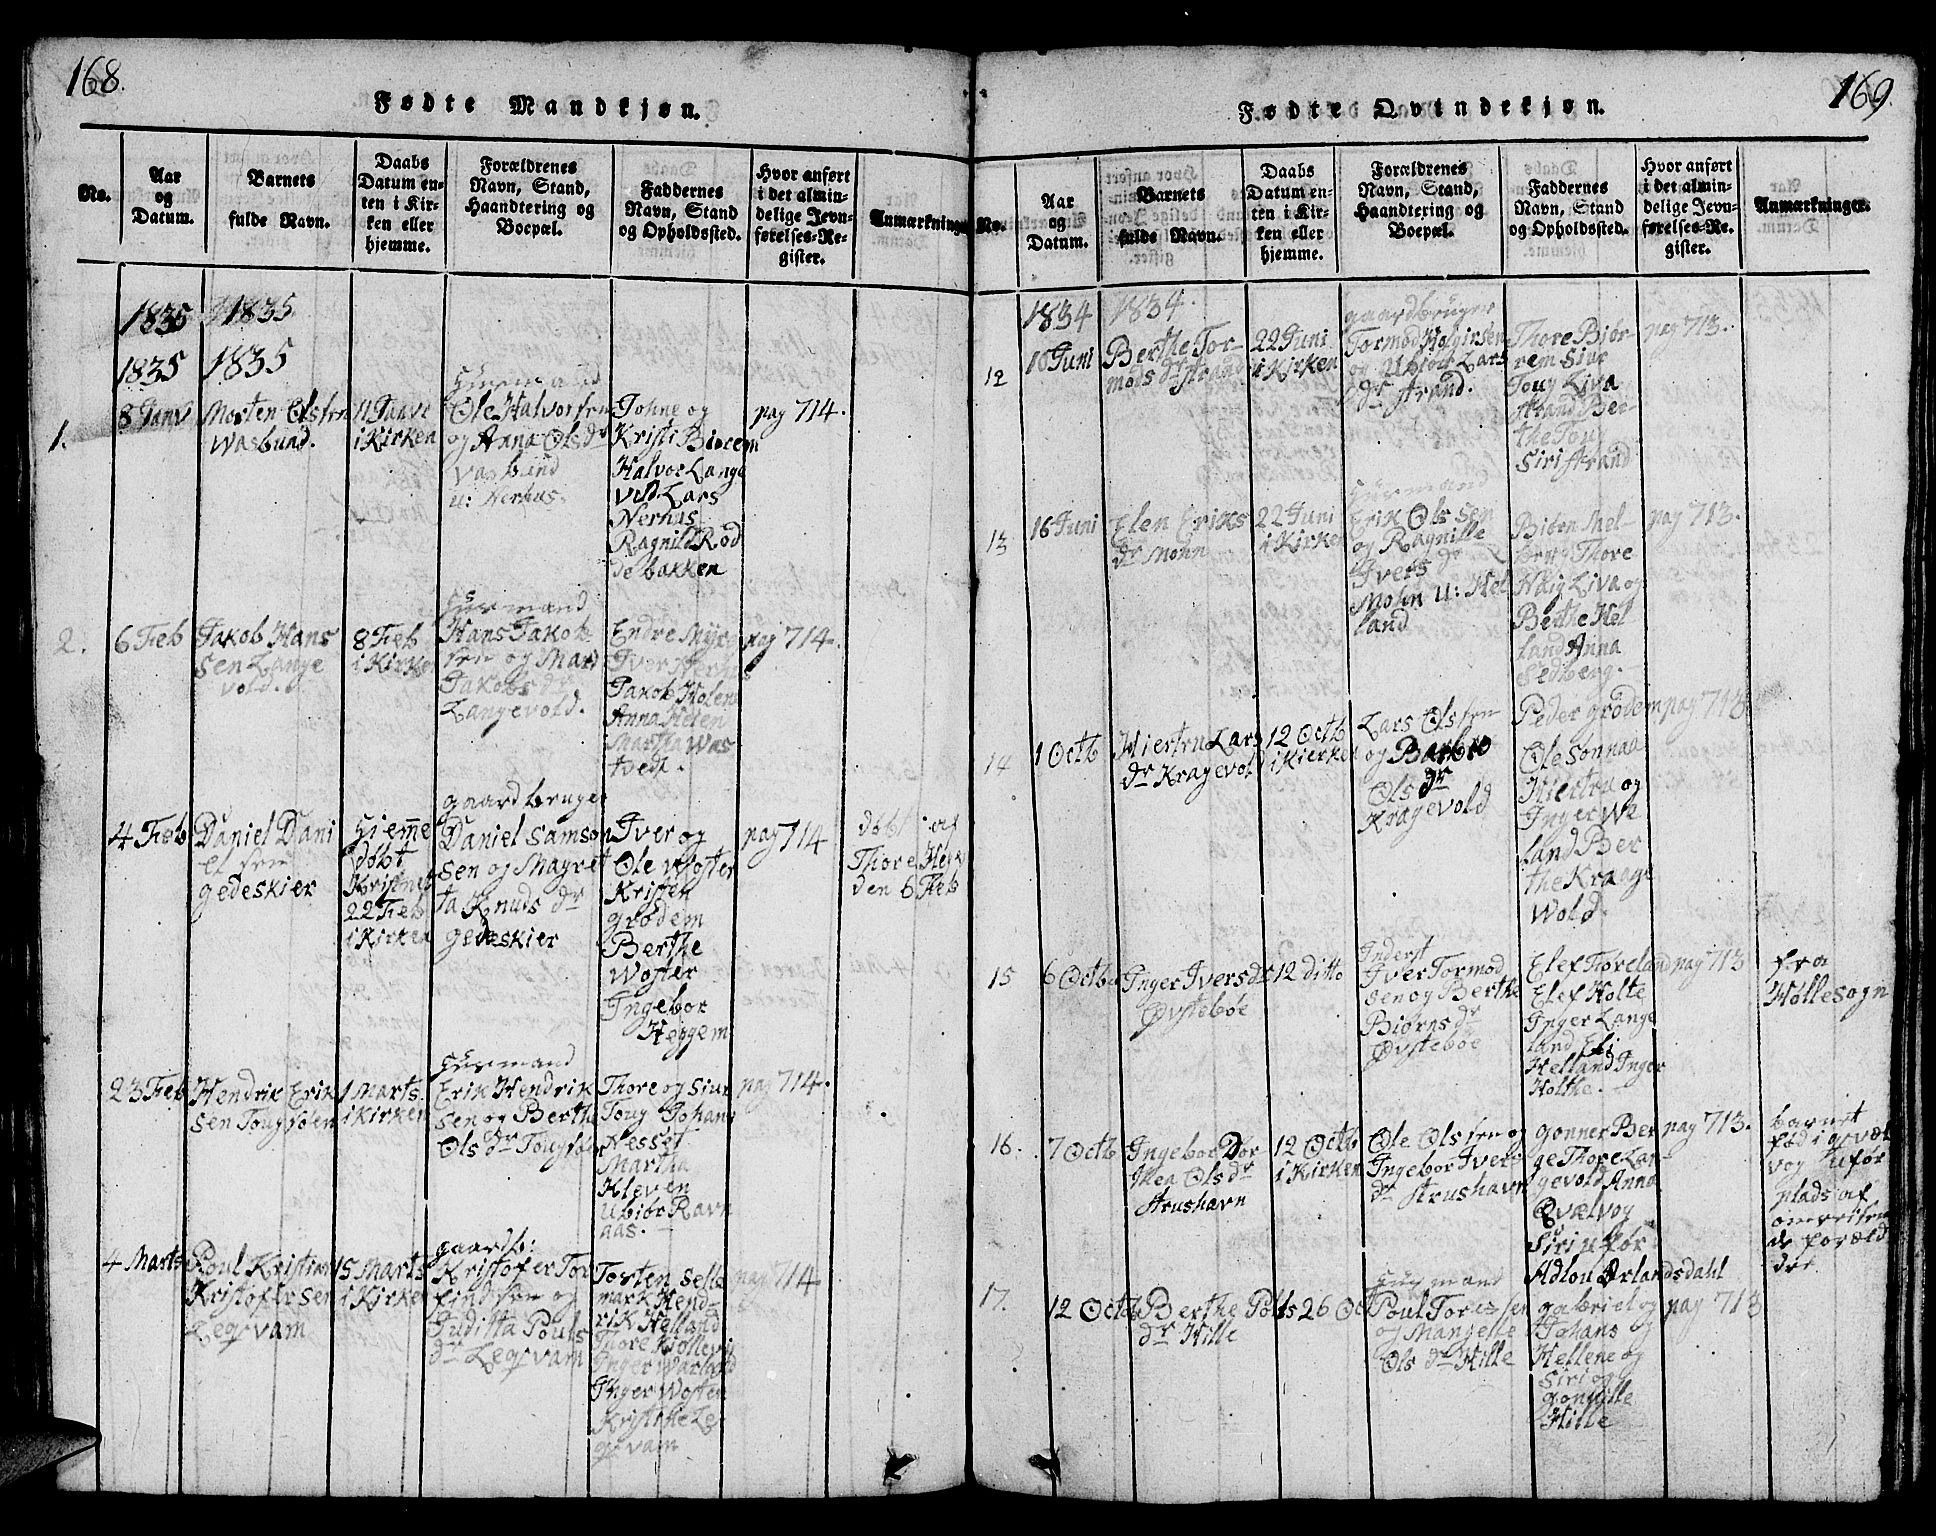 168.
Fødte Mandkjøn.
No.
Aar
og
Datum.
Barnets
fulde Navn.
Daabs
Datum en-
ten i Kir-
ken eller
hjemme.
Forældrenes
Navn, Stand,
Haandtering og
Boepæl.
Faddernes
Navn, Stand
og Opholdssted.
Hvor anført
i det almin-
delige Jevn-
førelses-Re-
gister.
Anmærkninger
1835 1835
1835 1835
1.
8 Janv
Morten Olsfen
Wasbund.
11 Janv
i Kirken
Huusmand
Ole Halvorsen
og Anna Ols dr
Vasbund
u: Nerhus.
Johne og
Kristi Biorem
Halvor Lange
vold Lars
Nerhus
Ragnild Rød
de bakken
pag 714.
2.
6 Feb
Jakob Hans
sen Lange
vold.
8 Feb
i Kirken
Huusmand
Hans Jakob
sen og Mari
Jakobs dr
Langevold.
Endre Myr
Iver
Jakob Holen
Anna Helen
Martha Was
tvedt.
pag 714.
4 Feb
Daniel Dani
elsen
gedeskier
Hjemme
døbt
Kristnet
22 Feb
i Kirken
gaardbruger
Daniel Samson
sen og Magret
ta Knuds dr
gedeskier
Iver og
Ole Woster
Kristen
grødem
Berthe
Woster
Ingebor
Heggem
pag 714
døbt af
Thore Hegg
den 6 Feb
23 Feb
Hendrik Erik
sen Tougsden
1 Marts
i Kirken
Huusmand
Erik Hendrik
sen og Berthe
Ols dr Tougsden
Thore og Siur
Toug Johans
Nesset
Martha
Kleven
Ubior Ravn
aas.
pag 714.
4 Marts
Poul Kristian
Kristofersen
Legvam
15 Marts
i Kirken
gaardb:
Kristofer Tor
findsen og
Juditta Pouls
dr Legvam
Torsten Selle
mark Hend
rik Helland
Thore Kollevig
Inger Warland
Inger Woster
Kristine Le
gvam
pag 714
169.
Fødte Qvindekjøn.
No.
Aar
og
Datum.
Barnets
fulde Navn.
Daabs
Datum en-
ten i Kir-
ken eller
hjemme.
Forældrenes
Navn, Stand,
Haandtering og
Boepæl.
Faddernes
Navn, Stand
og Opholdssted.
Hvor anført
i det almin-
delige Jevn-
førelses-Re-
gister.
Anmærkninger.
1834 1834.
12
10 Juni
Berthe Tor-
mods dr Strand
22 Juni
i Kirken
gaardbruger
Tormod Holgirsen
og Ubior Lars
dr Strand.
Thore Biør-
rem Siur
Toug Liva
Strand Ber-
the Toug
Siri Strand
pag 713.
13
16 Juni
Elen Eriks
dr Mohn
22 Juni
i Kirken
Huusmand
Erik Ols sen
og Ragnille
Ivers dr
Mohn u: Hel
land
Thore
Haig Liva og
Berthe Hel
land Anna
Sedberg.
pag 713.
14
1 Octb
Kiersten Lars
dr Kragevold
12 Octb
i Kierken
Lars Olsfen
og Barbro
Ols dr
Kragevold
Peder grødem
Ole Sønnaa
Kiestra og
Inger We
land Ber
the Kraage
Wold.
pag 713
15
6 Octb
Inger Ivers dr
Øvstebøe
12 ditto
Inderst
Iver Tormod
sen og Berthe
Biorns dr
Øvstebøe
Elef Fioreland
Elef Holte
Inger Lange
land Eli
Helland Inger
Holthe.
pag 713
fra
Hølle sogn
16.
7 Octb
Ingebor Dor
thea Ols dr
Strushavn
12 Octb
i Kirken
Ole Olsfen og
Ingebor Ivers
dr Strushavn
gonner Ber
ge Thore Lan-
gevold Anna
Qvælvog
Siri Ufør
Adlou Ørlandsdahl
pag 713.
barnet
fød i qvæl
vog Ufør
plads af
omreisen
de foræld
dre.
17.
12 Octb
Berthe Pouls
dr Hille
26 Oct
Huusmand
Poul Tores sen
og Mangelle
Ols dr Hille
gabriel og
Johans
Hellene og
Siri og
gonnille
Hille
pag 713